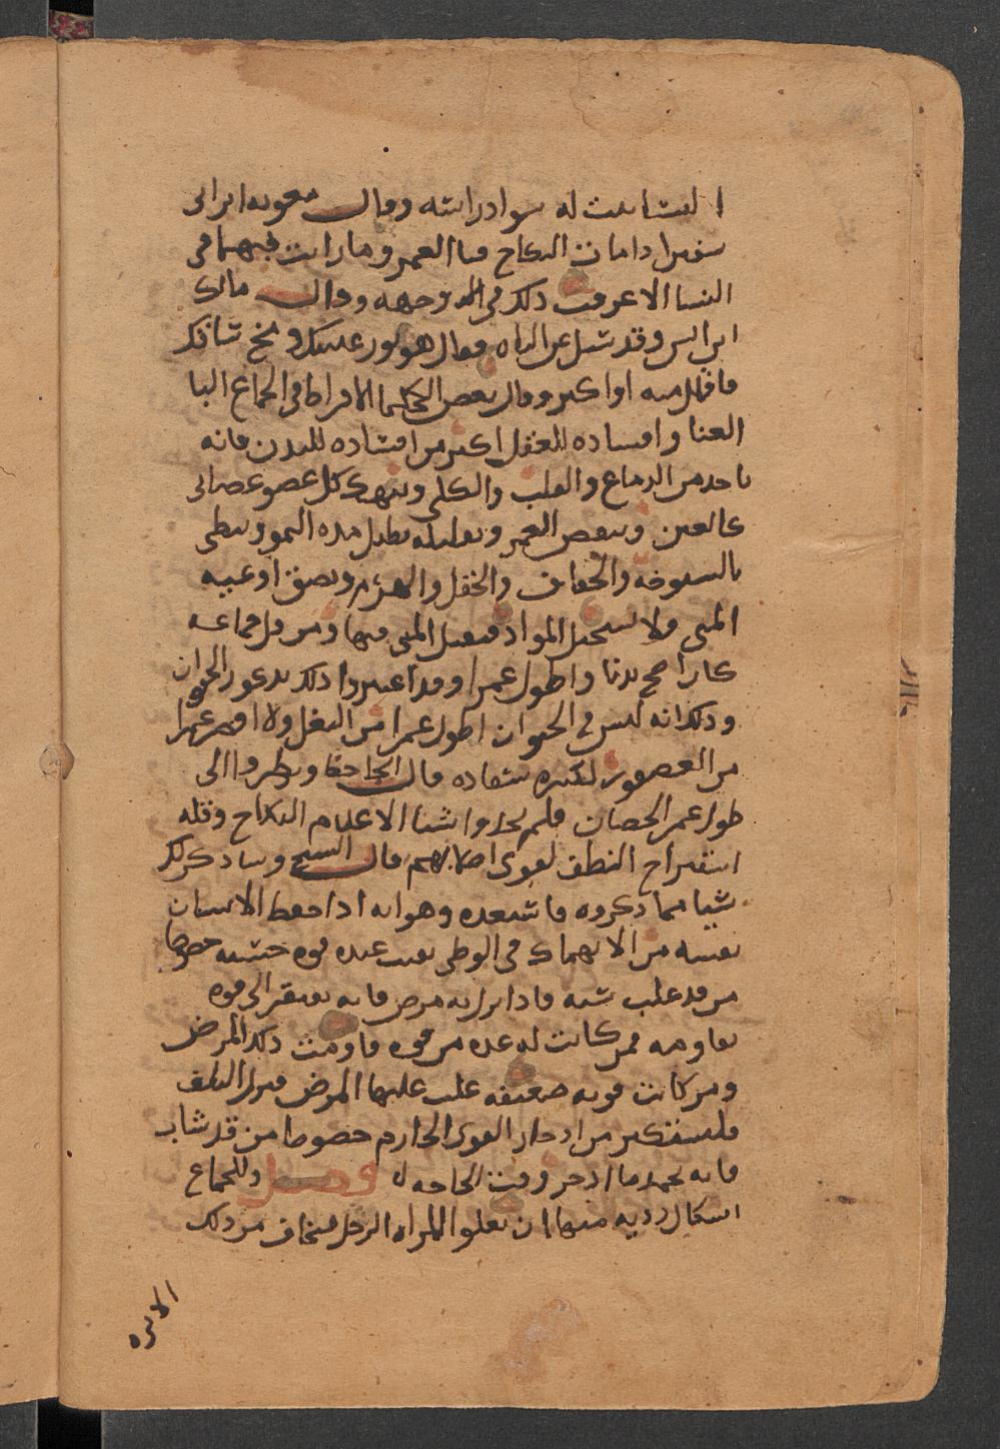 له سوادرايته وقال معويه ابن ابى
سفين اذا مات النكاح العمر وما رايت فيهما فى
النسا الا عرفت ذلك فى وجهه وقال مالك
ابن انس وقد سيل عن الباه فقال هو نور عينيك ومخ ساقيك
فاقلل منه او اكثر وقال بعض الحكما الافراط فى الجماع
وافساده للعقل اكثر من افساده للبدن فانه
ياخذ من الدماغ والقلب والكلى وينهك كل عضو عصبانى
كالعين وينقص العمر وتقليله يطيل مده النمو ويبطى
بالشيخوخه والجفاف والهرم وتضيق اوعيه
المنى فلا تستحيل المواد فيقل المنى فيها ومن قل جماعه
كان اصح بدنا واطول عمرا وقد اعتبروا ذلك بذكور الحيوان
وذلك انه ليس فى الحيوان اطول عمرا من البغل ولا اقصر عمرا
من العصفور لكثره سفاده قال الجاحظ ونظروا الى
طول عمر الخصيان فلم يجدوا شيا الا عدم النكاح وقله
استفراغ النطف لقوى اصلابهم قال الشيخ وساذكر لك
شيا مما ذكروه فاستعده وهو انه اذا حفظ الانسان
نفسه من الانهماك فى الوطى بقيت عنده قوه خصوصا
من قد علت سنه فاذا نزل به مرض فانه يفتقر الى قوه
تقاومه فمن كانت له عده من قوه قاومت ذلك المرض
ومن كانت قوته ضعيفه غلب عليها المرض فنزل التلف
فليستكثر من ادخار القوى الحازم خصوصا من قد شاب
فانه يحمد ما ادخر وقت الحاجه فصل وللجماع
اشكال رديه منها ان تعلوا المراه الرجل فيخاف من ذلك
الادره